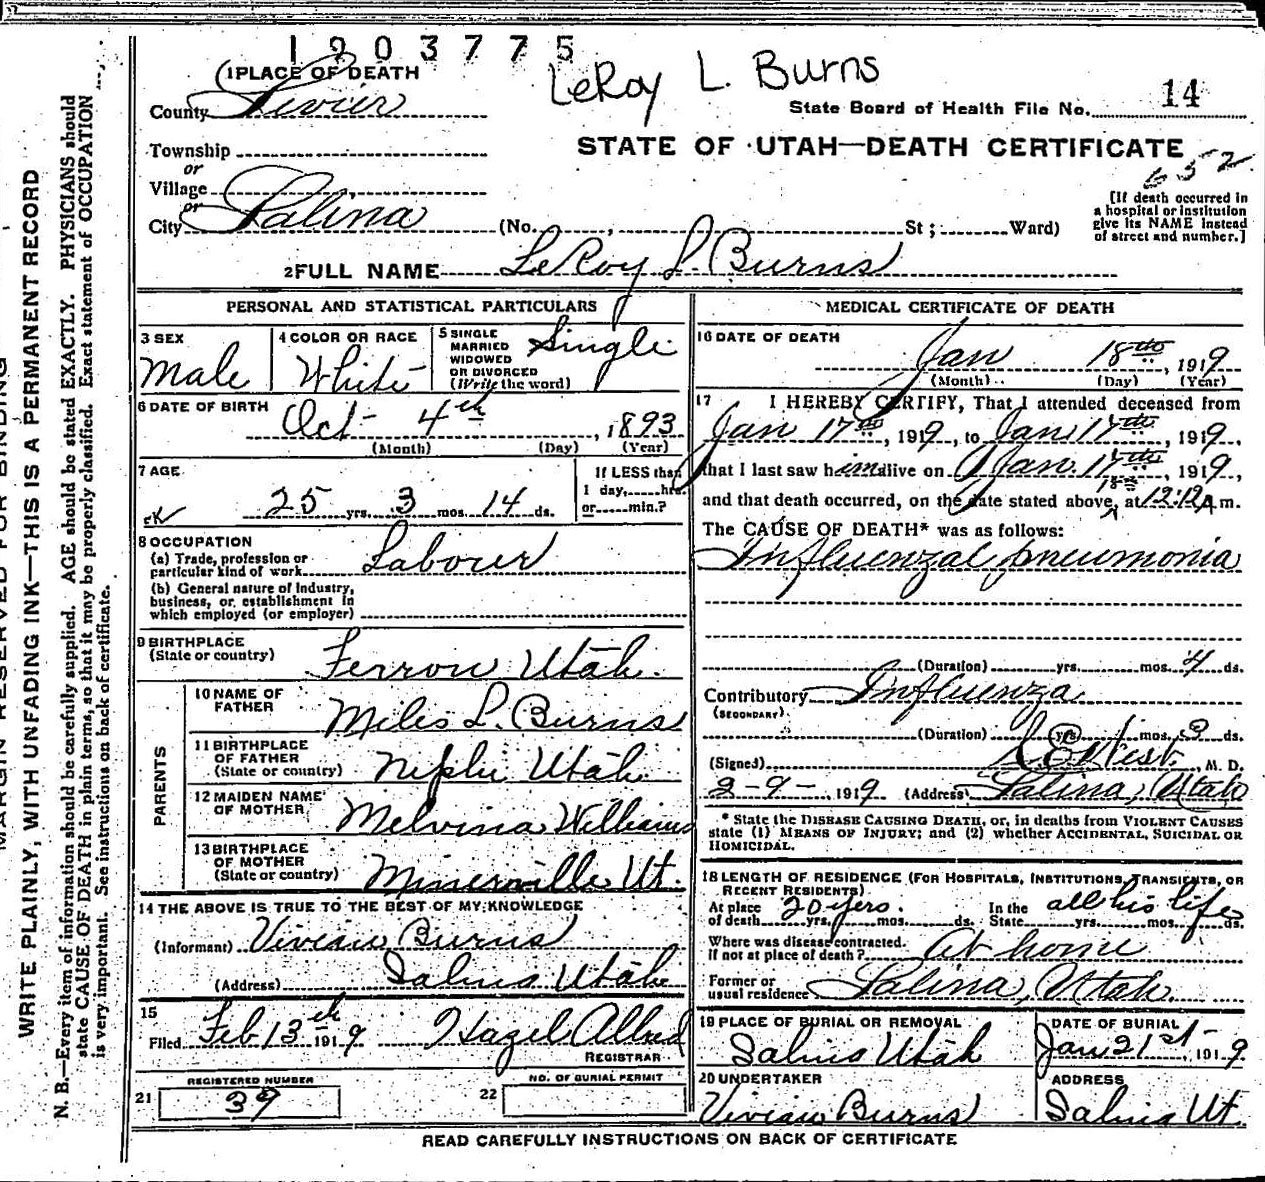 1903775
LeRoy L. Burns
1 PLACE OF DEATH
County Sevier
State Board of Health File No. 14
STATE OF UTAH—DEATH CERTIFICATE
652
Township
or
Village
or
City Salina (No. , St ; Ward)
[If death occurred in
a hospital or institution
give its NAME instead
of street and number.]
2 FULL NAME LeRoy L. Burns
PERSONAL AND STATISTICAL PARTICULARS
3 SEX
Male
4 COLOR OR RACE
White
5 SINGLE
MARRIED
WIDOWED
OR DIVORCED
(Write the word)
Single
6 DATE OF BIRTH
Oct - 4th , 1893
(Month) (Day) (Year)
7 AGE
25 yrs. 3 mos. 14 ds.
If LESS than
1 day, hrs.
or min.?
8 OCCUPATION
(a) Trade, profession or
particular kind of work Labour
(b) General nature of industry,
business, or establishment in
which employed (or employer)
9 BIRTHPLACE
(State or country) Ferron Utah.
PARENTS
10 NAME OF
FATHER Miles L. Burns
11 BIRTHPLACE
OF FATHER
(State or country) Nephi Utah
12 MAIDEN NAME
OF MOTHER Melvina Williams
13 BIRTHPLACE
OF MOTHER
(State or country) Minersville Ut.
14 THE ABOVE IS TRUE TO THE BEST OF MY KNOWLEDGE
(Informant) Vivian Burns
(Address) Salina Utah
15
Filed Feb 13th 1919 Hazel Allred
REGISTRAR
21 REGISTERED NUMBER
39
22 NO. OF BURIAL PERMIT
MEDICAL CERTIFICATE OF DEATH
16 DATE OF DEATH
Jan 18th , 1919
(Month) (Day) (Year)
17 I HEREBY CERTIFY, That I attended deceased from
Jan 17th, 1919, to Jan 17th, 1919,
that I last saw him alive on Jan. 17th, 1919,
and that death occurred, on the date stated above, at 12:12 A m.
The CAUSE OF DEATH* was as follows:
Influenzal pneumonia
(Duration) yrs. mos. 4 ds.
Contributory Influenza
(SECONDARY)
(Duration) yrs. mos. 3 ds.
(Signed) West , M. D.
2-9- , 1919 (Address) Salina, Utah
* State the DISEASE CAUSING DEATH, or, in deaths from VIOLENT CAUSES
state (1) MEANS OF INJURY; and (2) whether ACCIDENTAL, SUICIDAL OR
HOMICIDAL.
18 LENGTH OF RESIDENCE (FOR HOSPITALS, INSTITUTIONS, TRANSIENTS, OR
RECENT RESIDENTS)
At place
of death 20 yers. yrs. mos. ds.
In the
State all his life yrs. mos. ds.
Where was disease contracted.
if not at place of death? At home
Former or
usual residence Salina, Utah.
19 PLACE OF BURIAL OR REMOVAL
Salina Utah
DATE OF BURIAL
Jan 21st 1919
20 UNDERTAKER
Vivian Burns
ADDRESS
Salina Ut.
READ CAREFULLY INSTRUCTIONS ON BACK OF CERTIFICATE
MARGIN RESERVED FOR BINDING
WRITE PLAINLY, WITH UNFADING INK—THIS IS A PERMANENT RECORD
N. B.—Every item of information should be carefully supplied. AGE should be stated EXACTLY. PHYSICIANS should
state CAUSE OF DEATH in plain terms, so that it may be properly classified. Exact statement of OCCUPATION
is very important. See instructions on back of certificate.